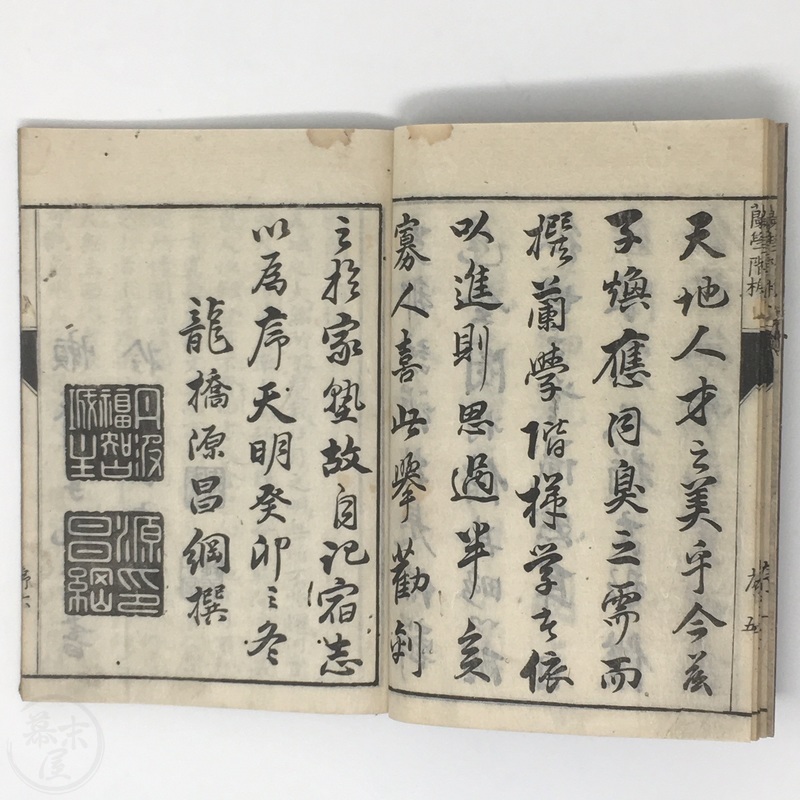 蘭學階梯
序 五
天地人才之美乎今茲
子煥應同臭之需而
撰蘭學階梯学者依
以進則思過半矣
寡人喜此擧勸剞
之於家塾故自記宿志
以為序天明癸卯之冬
龍橋源昌綱撰
丹波
福智
城主
源印
昌綱
序六
幕末屋